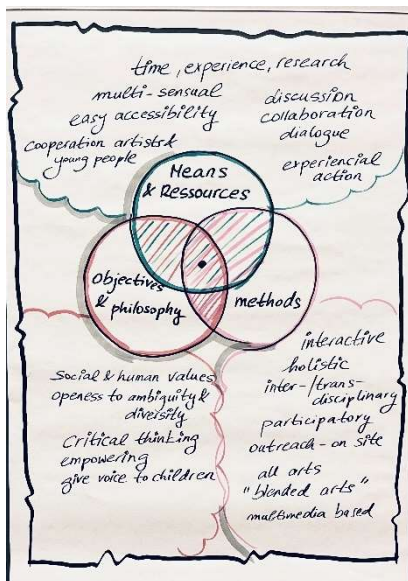 time, experience, research
multi-sensual
easy accessibility
cooperation artists &
young people
discussion
collaboration
dialogue
experiencial
action
Means
& Ressources
Objectives
& philosophy
methods
Social & human values
openess to ambiguity &
diversity
Critical thinking
empowering
give voice to children
interactive
holistic
inter-/trans-
disciplinary
participatory
outreach - on site
all arts
"blended arts"
multimedia based